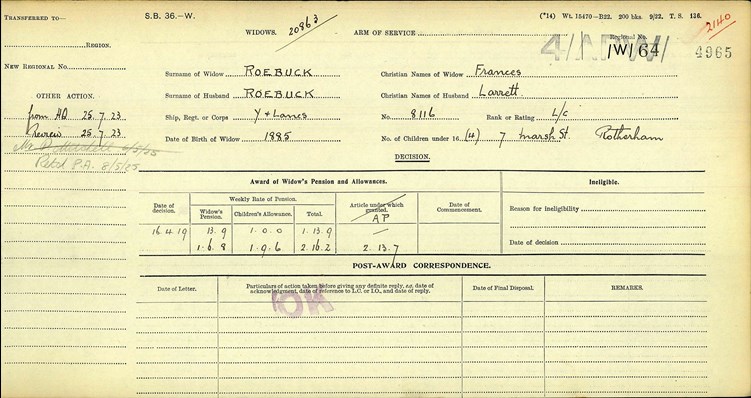 TRANSFERRED TO—
S.B. 36.—W.
(*14) Wt. 15470—B22. 200 bks. 9/22. T. S. 136.
2140
WIDOWS. 20863
ARM OF SERVICE
Region.
Regional No.
4/APW/
1W164
4965
NEW REGIONAL No.
Surname of Widow ROEBUCK
Christian Names of Widow Frances
OTHER ACTION.
Surname of Husband ROEBUCK
Christian Names of Husband Larrett
from HQ. 25.7.23
Ship, Regt. or Corps Y + Lancs
No. 8116
Rank or Rating L/c
Review 25.7.23
Date of Birth of Widow 1885
No. of Children under 16 (4) 7 Marsh St. Rotherham
Retd P.A. 8/5/25
DECISION.
Award of Widow's Pension and Allowances.
Ineligible.
Date of decision.
Weekly Rate of Pension.
Widow's Pension.
Children's Allowance.
Total.
Article under which granted.
AP
Date of Commencement.
Reason for ineligibility
16.4.19
13.9
1.0.0
1.13.9
1.6.8
1.9.6
2.16.2
2.13.7
Date of decision
POST-AWARD CORRESPONDENCE.
Date of Letter.
Particulars of action taken before giving any definite reply, as, date of acknowledgment, date of reference to L.C. or I.O., and date of reply.
Date of Final Disposal.
REMARKS.
OK